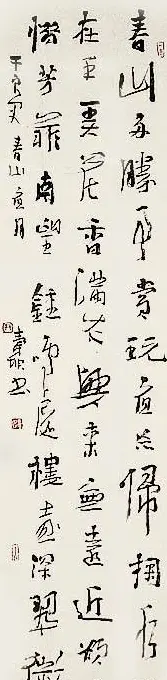 春山多勝事賞玩夜忘歸掬水
在手弄花香滿衣興來無遠近欲
惜芳菲南望鐘鳴處樓臺深翠微
于良史 春山夜月 書